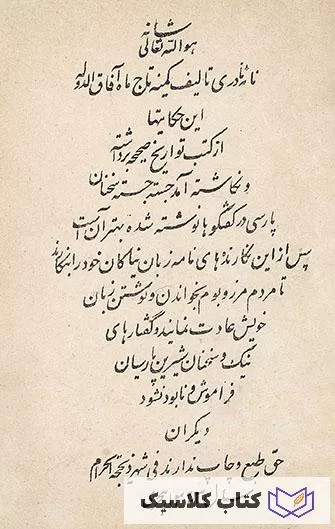 هو الله تعالی شانه
نامه نادری تالیف کمینه تاج ماه آفاق الدوله
این حکایتها
از کتب تواریخ صحیحه برداشته
و نگاشته آمد جسته جسته سخنان
پارسی در گفتگوها نوشته شده بهتر آن است
پس از این نگارنده‌های نامه زبان نیاکان خود را بنگارند
تا مردم مرز و بوم بخواندن و نوشتن زبان
خویش عادت نمایند و گفتارهای
نیک و سخنان شیرین پارسیان
فراموش و نابود نشود
دیگران
حق طبع و چاپ ندارند فی شهر ذیحجة الحرام
کتاب کلاسیک